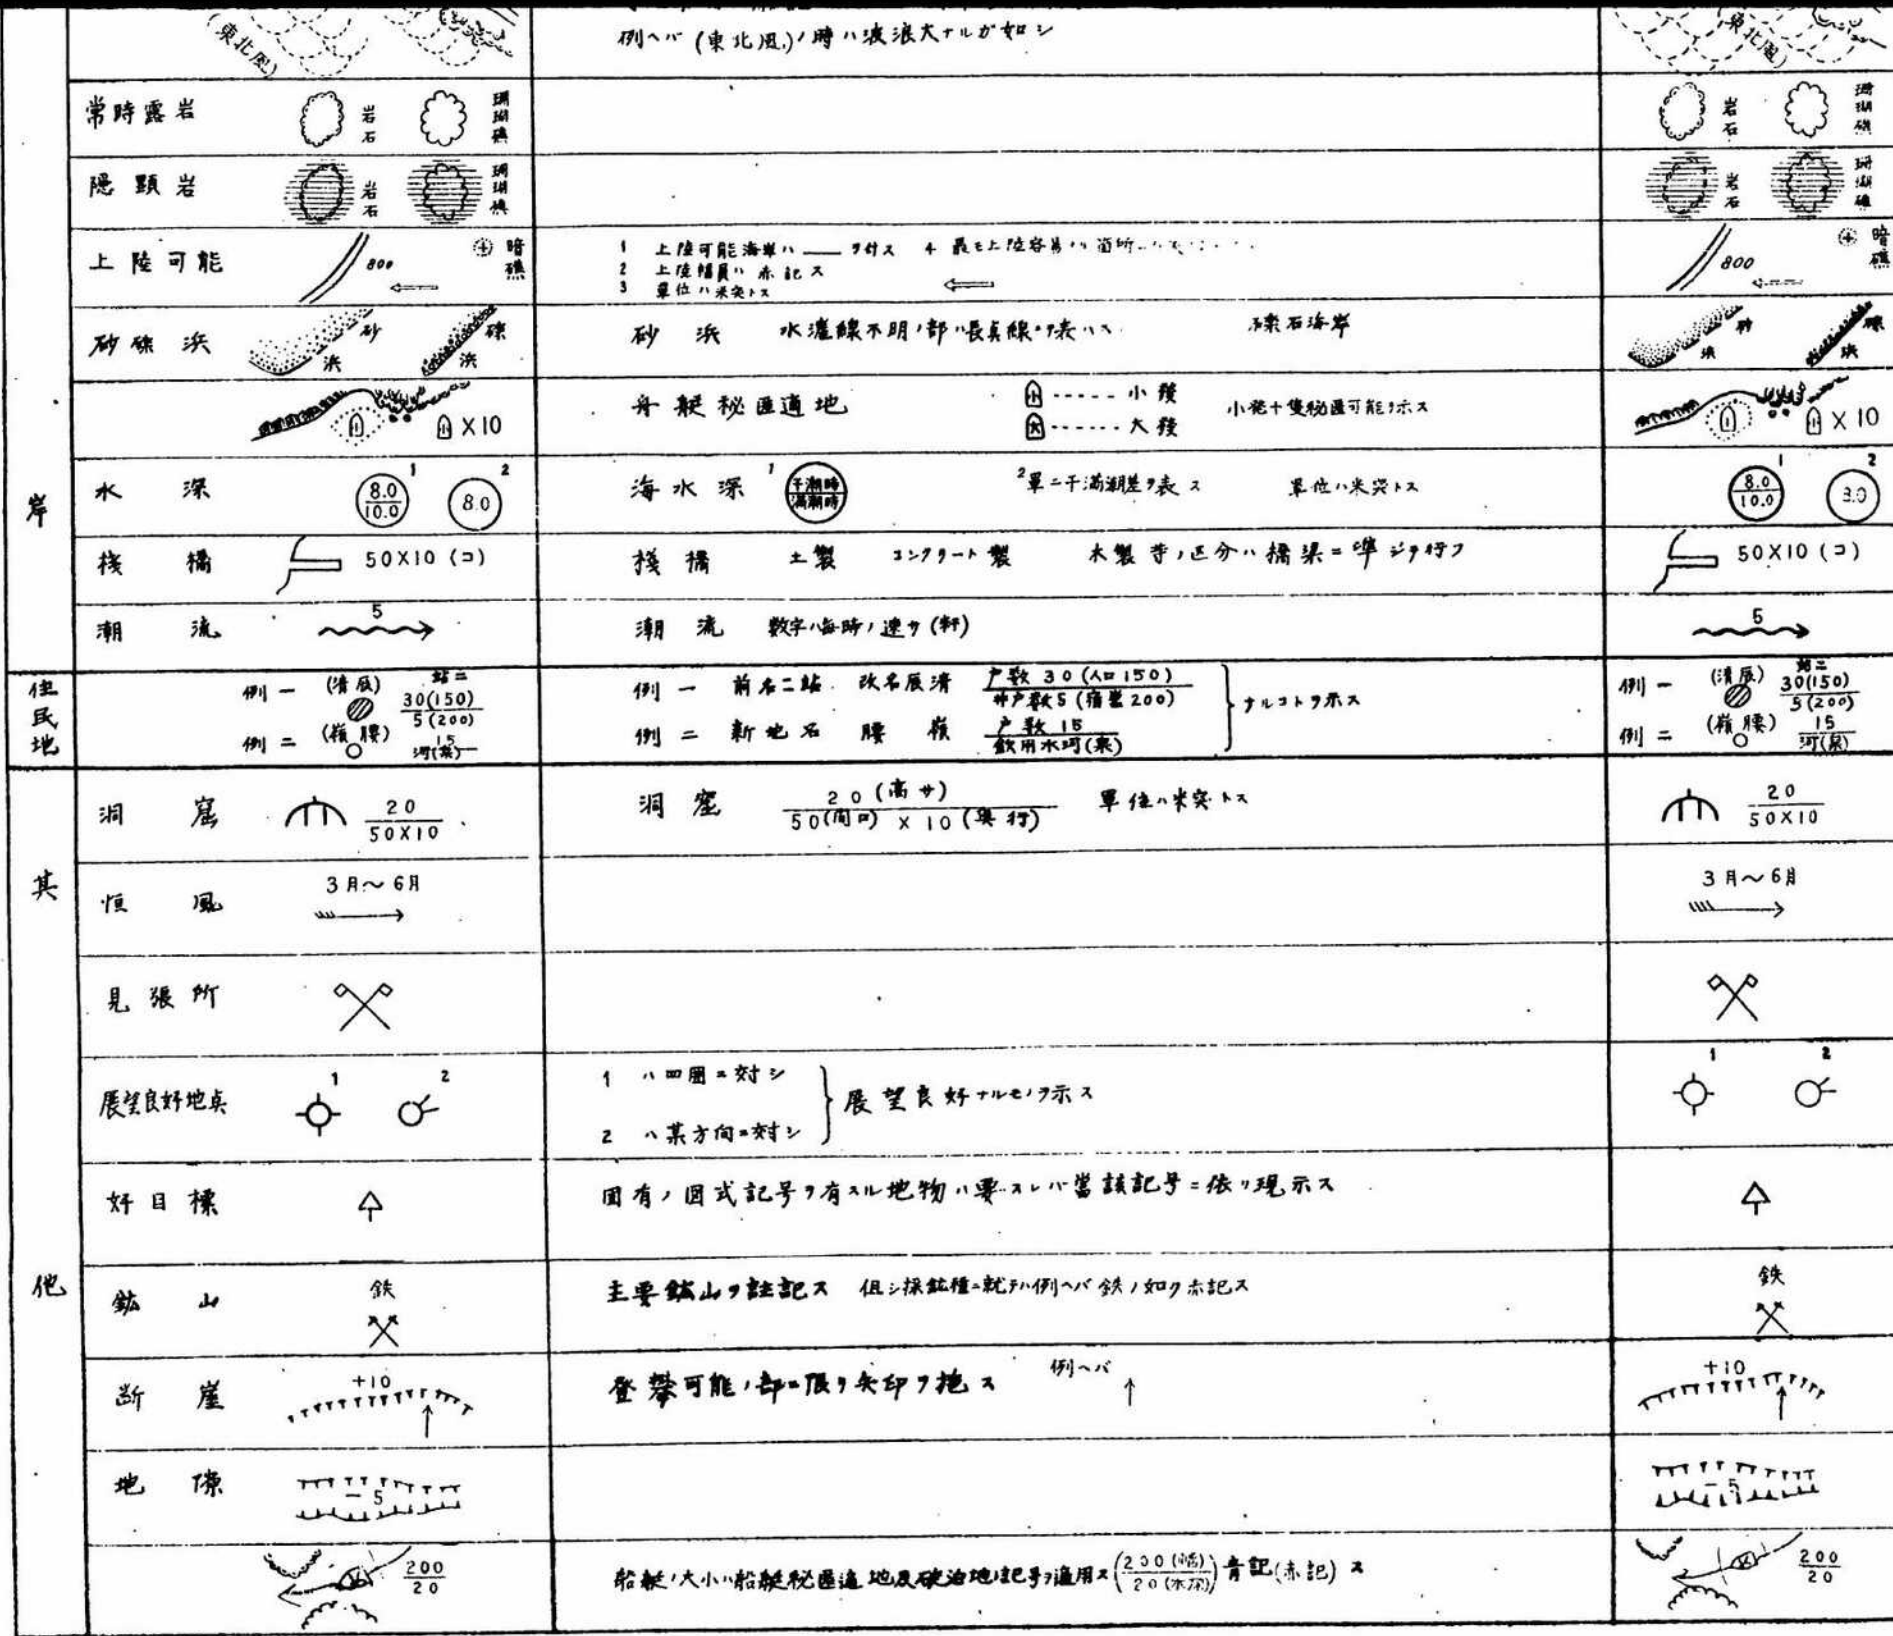 (東北風) 例ヘバ (東北風)ノ時ハ波浪大ナルガ如シ (東北風)
常時露岩 岩石 珊瑚礁 岩石 珊瑚礁
隠顕岩 岩石 珊瑚礁 岩石 珊瑚礁
上陸可能 800 暗礁
1 上陸可能海岸ハ ヲ付ス 4 最モ上陸容易
2 上陸幅員ハ赤記ス
3 單位ハ米突トス
800 暗礁
砂礫浜 砂浜 礫浜 砂浜 水濂線不明ノ部ハ長真線 礫石海岸 砂浜 礫浜
小 小 ×10 舟艇秘匿適地
小 ----- 小發
大 ------ 大發
小発十隻秘匿可能ヲ示ス 小 小 ×10
岸
水深 1 8.0/10.0 2 8.0 海水深 1 干潮時/満潮時 2 單ニ干満潮差ヲ表ス 單位ハ米突トス 1 8.0/10.0 2 8.0
棧橋 50×10 (コ) 棧橋 土製 コンクリート製 木製等ノ区分ハ橋梁ニ準ジヲ行フ 50×10 (コ)
潮流 5 潮流 数字ハ毎時ノ速サ(粁) 5
住民地
例一 (清辰) 站二 30(150)/5(200) 例一 前名二站 改名辰清 戸数30(人口150)/井戸数5(宿営200) 例一 (清辰) 站二 30(150)/5(200)
例二 (嶺腰) 15/河(泉) 例二 新地名 腰嶺 戸数15/飲用水河(泉) ナルコトヲ示ス 例二 (嶺腰) 15/河(泉)
其他
洞窟 20/50×10 洞窟 20(高サ)/50(間口) × 10(奥行) 單位ハ米突トス 20/50×10
恒風 3月〜6月 3月〜6月
見張所
展望良好地点 1 2
1 ハ四囲ニ対シ
2 ハ某方向ニ対シ
展望良好ナルモノヲ示ス 1 2
好目標 固有ノ図式記号ヲ有スル地物ハ要スレバ當該記号ニ依リ現示ス
鉱山 鉄 主要鉱山ヲ註記ス 但シ採鉱種ニ就テハ例ヘバ鉄ノ如ク赤記ス 鉄
断崖 +10 登攀可能ノ部ニ限リ矢印ヲ施ス 例ヘバ ↑ +10
地隙 -5 -5
200/20 船艇ノ大小ハ船艇秘匿適地及碇泊地記号ヲ適用ス (200(幅)/20(水深)) 青記(赤記)ス 200/20